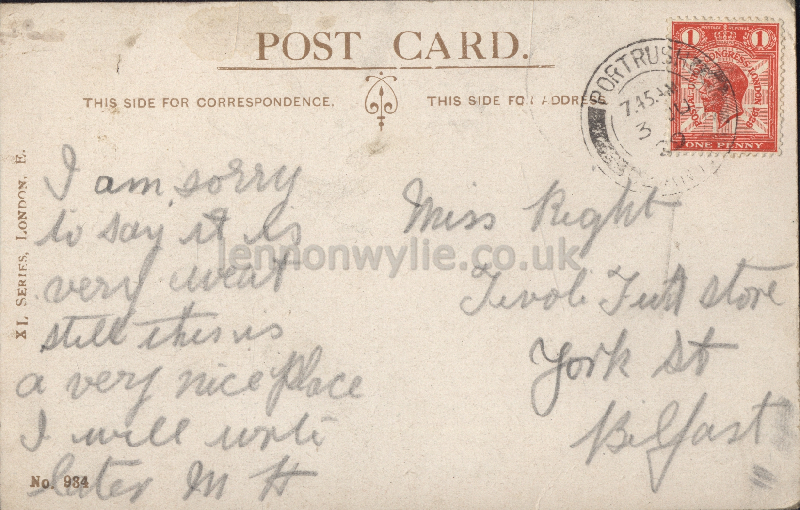 POST CARD.
THIS SIDE FOR CORRESPONDENCE.
THIS SIDE FOR ADDRESS
XL SERIES, LONDON. E.
No. 934
I am sorry
to say it is
very weat
still this is
a very nice place
I will write
later M H
Miss Right
Tivoli Fruit store
York St
Belfast
PORTRUSH
7.45 AM
3 JU
29
1 1
POSTAL UNION CONGRESS LONDON 1929
ONE PENNY
lennonwylie.co.uk